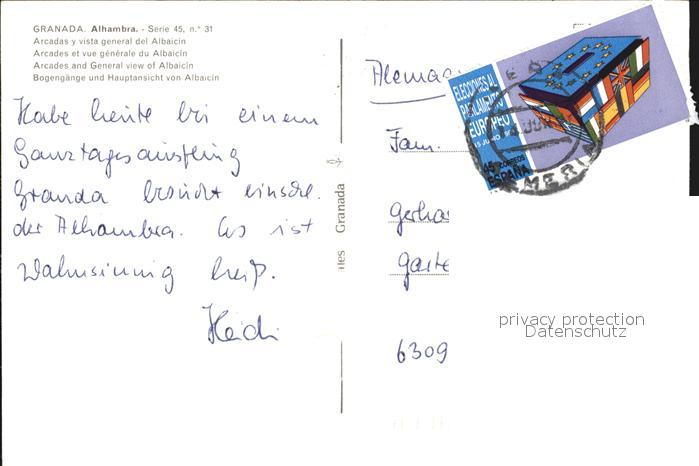 GRANADA. Alhambra. - Serie 45, n.° 31
Arcadas y vista general del Albaicín
Arcades et vue générale du Albaicín
Arcades and General view of Albaicín
Bogengänge und Hauptansicht von Albaicín
Habe heute bei einem
Ganztagesausflug
Granda besucht einschl.
der Alhambra. Es ist
wahnsinnig heiß.
Heidi
Granada
Alema
Fam.
Gerha
Garte
6309
ELECCIONES AL
PARLAMENTO
EUROPEO
15 JUNIO
45 CORREOS
ESPAÑA
privacy protection
Datenschutz